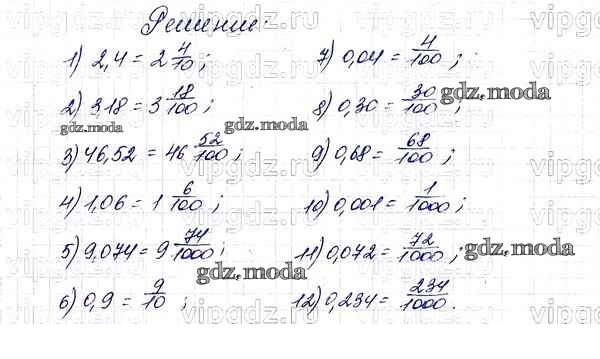 Решение
1) 2,4 = 2 4/10;
2) 3,18 = 3 18/100;
3) 46,52 = 46 52/100;
4) 1,06 = 1 6/100;
5) 9,074 = 9 74/1000;
6) 0,9 = 9/10;
7) 0,04 = 4/100;
8) 0,30 = 30/100;
9) 0,68 = 68/100;
10) 0,001 = 1/1000;
11) 0,072 = 72/1000;
12) 0,234 = 234/1000.
gdz.moda
gdz.moda
gdz.moda
gdz.moda
gdz.moda
vipgdz.ru